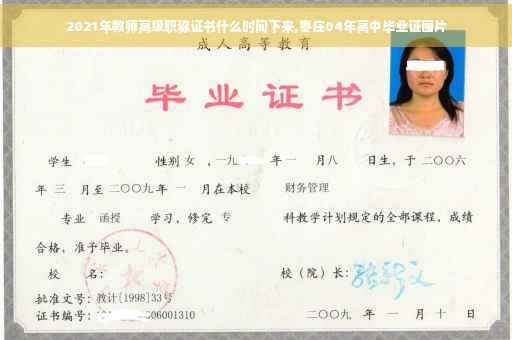 2021年教师高级职称证书什么时间下来,枣庄04年高中毕业证图片
成人高等教育
毕业证书
学生 性别 女 ，一九 年 一 月八 日生，于 二〇〇六
年 三 月至 二〇〇九 年 一 月在本校 财务管理
专业 函授 学习，修完 专 科教学计划规定的全部课程，成绩
合格，准予毕业。
校 名： 校（院）长：
批准文号：教计[1998]33号
证书编号： 06001310 二〇〇九 年 一 月 十 日